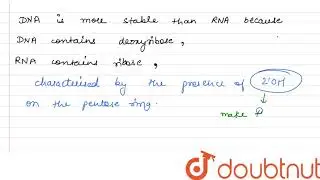 DNA is more stable than RNA because
DNA contains deoxyribose,
RNA contains ribose,
characterised by the presence of 2'OH
on the pentose ring.
make
doubtnut